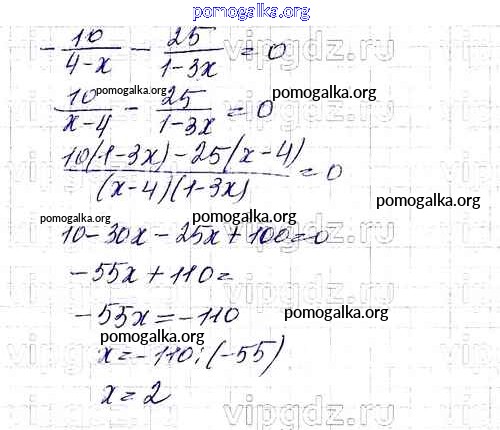 pomogalka.org
- 10/(4-x) - 25/(1-3x) = 0
10/(x-4) - 25/(1-3x) = 0
(10(1-3x) - 25(x-4))/((x-4)(1-3x)) = 0
10-30x-25x+100=0
-55x+110=
-55x=-110
x=-110:(-55)
x=2
pomogalka.org
pomogalka.org
pomogalka.org
pomogalka.org
pomogalka.org
pomogalka.org
pomogalka.org
pomogalka.org
vipgdz.ru
vipgdz.ru
vipgdz.ru
vipgdz.ru